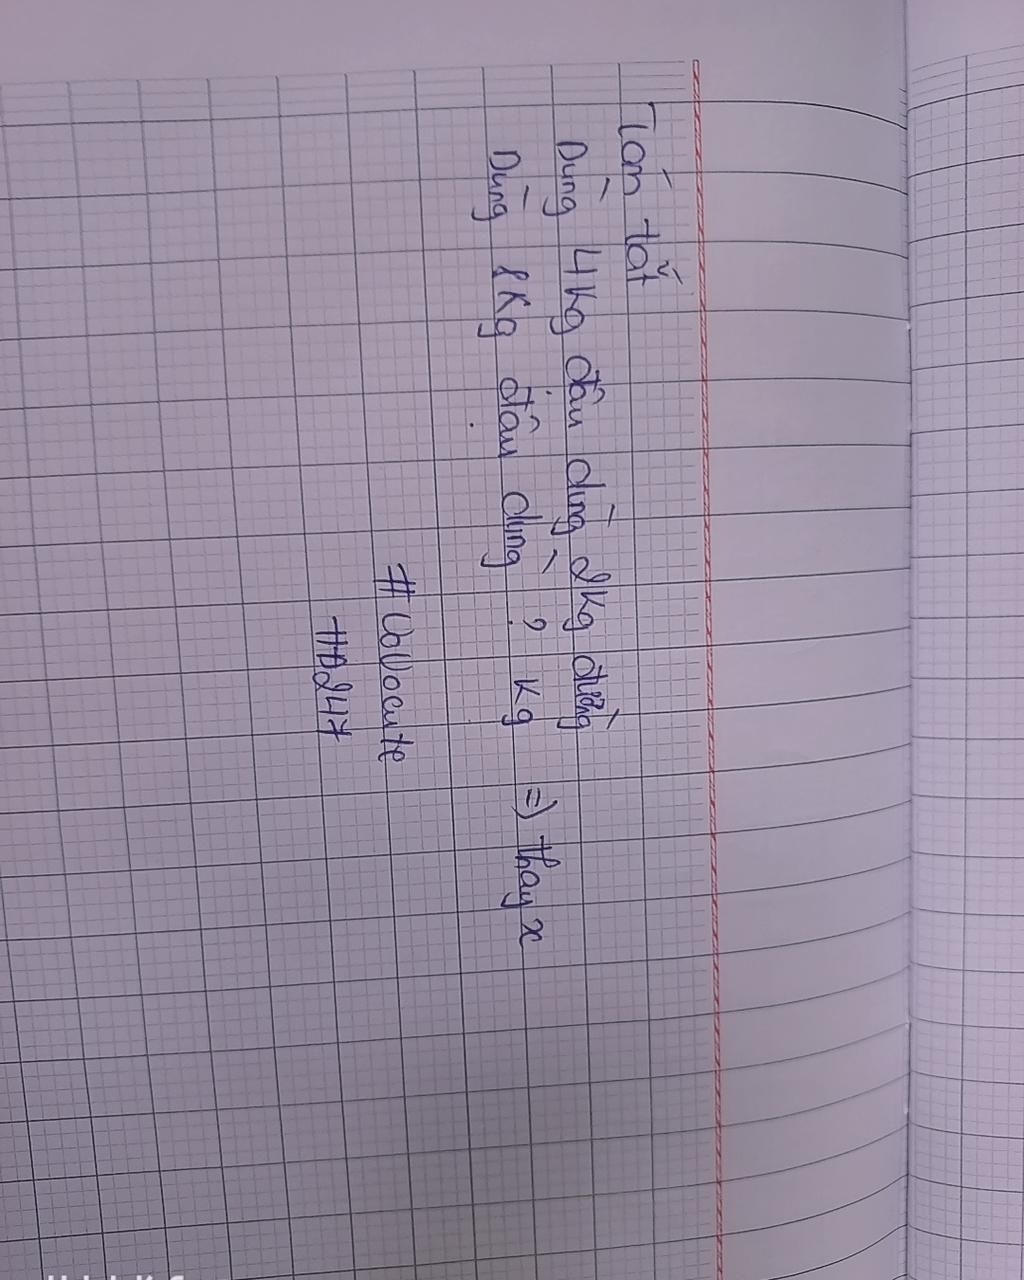 Tóm tắt
Dùng 4kg đậu dùng 2kg đường
Dùng 8kg đậu dùng ? kg => thay x
#UoUacute
#H247